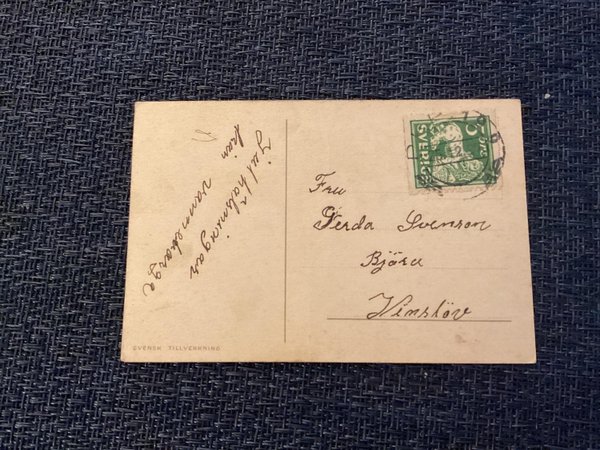 Julhälsningar
från
Fru
Gerda Svenson
Björa
Vinslöv
SVERIGE
5
SVENSK TILLVERKNING